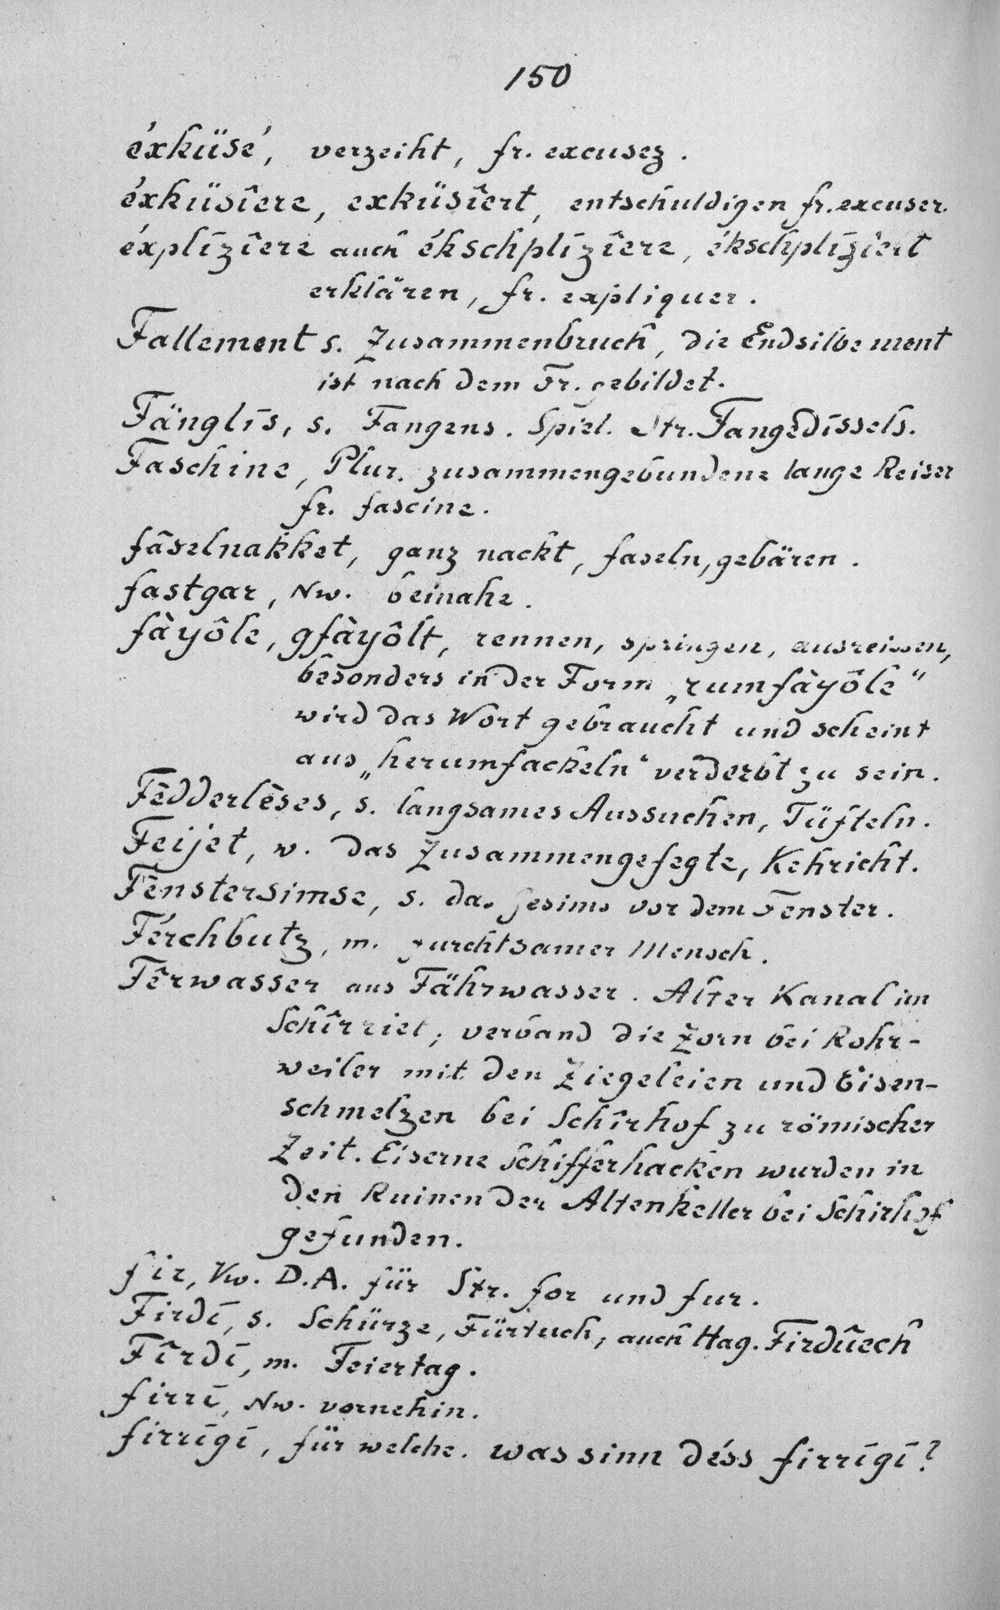 150
éxküsé, verzeiht, fr. excusez.
éxküsîere, exküsîert, entschuldigen fr. excuser.
éxplīzîere auch ékschplīzîere, ékschplīzîert
erklären, fr. expliquer.
Fallement s. Zusammenbruch, die Endsilbe ment
ist nach dem Fr. gebildet.
Fänglīs, s. Fangens. Spiel. Str. Fangedīssels.
Faschine, Plur. zusammengebundene lange Reiser
fr. fascine.
fâselnakket, ganz nackt, faseln, gebären.
fastgar, Nw. beinahe.
fàyôle, gfàyôlt, rennen, springen, ausreissen,
besonders in der Form „rumfàyôle“
wird das Wort gebraucht und scheint
aus „herumfackeln“ verderbt zu sein.
Fêdderlêses, s. langsames Aussuchen, Tüfteln.
Feijet, w. das Zusammengefegte, Kehricht.
Fênstersimse, s. das Gesims vor dem Fenster.
Férchbutz, m. furchtsamer Mensch.
Fêrwasser aus Fährwasser. Alter Kanal im
Schîrriet; verband die Zorn bei Rohr-
weiler mit den Ziegeleien und Eisen-
schmelzen bei Schîrhof zu römischer
Zeit. Eiserne Schifferhacken wurden in
den Ruinen der Altenkeller bei Schirhof
gefunden.
fir, Vw. D.A. für Str. for und fur.
Firdī, s. Schürze, Fürtuch, auch Hag. Firdûech
Fîrdī, m. Feiertag.
firrī, Nw. vornehin.
firrīgī, für welche. was sinn déss firrīgī?